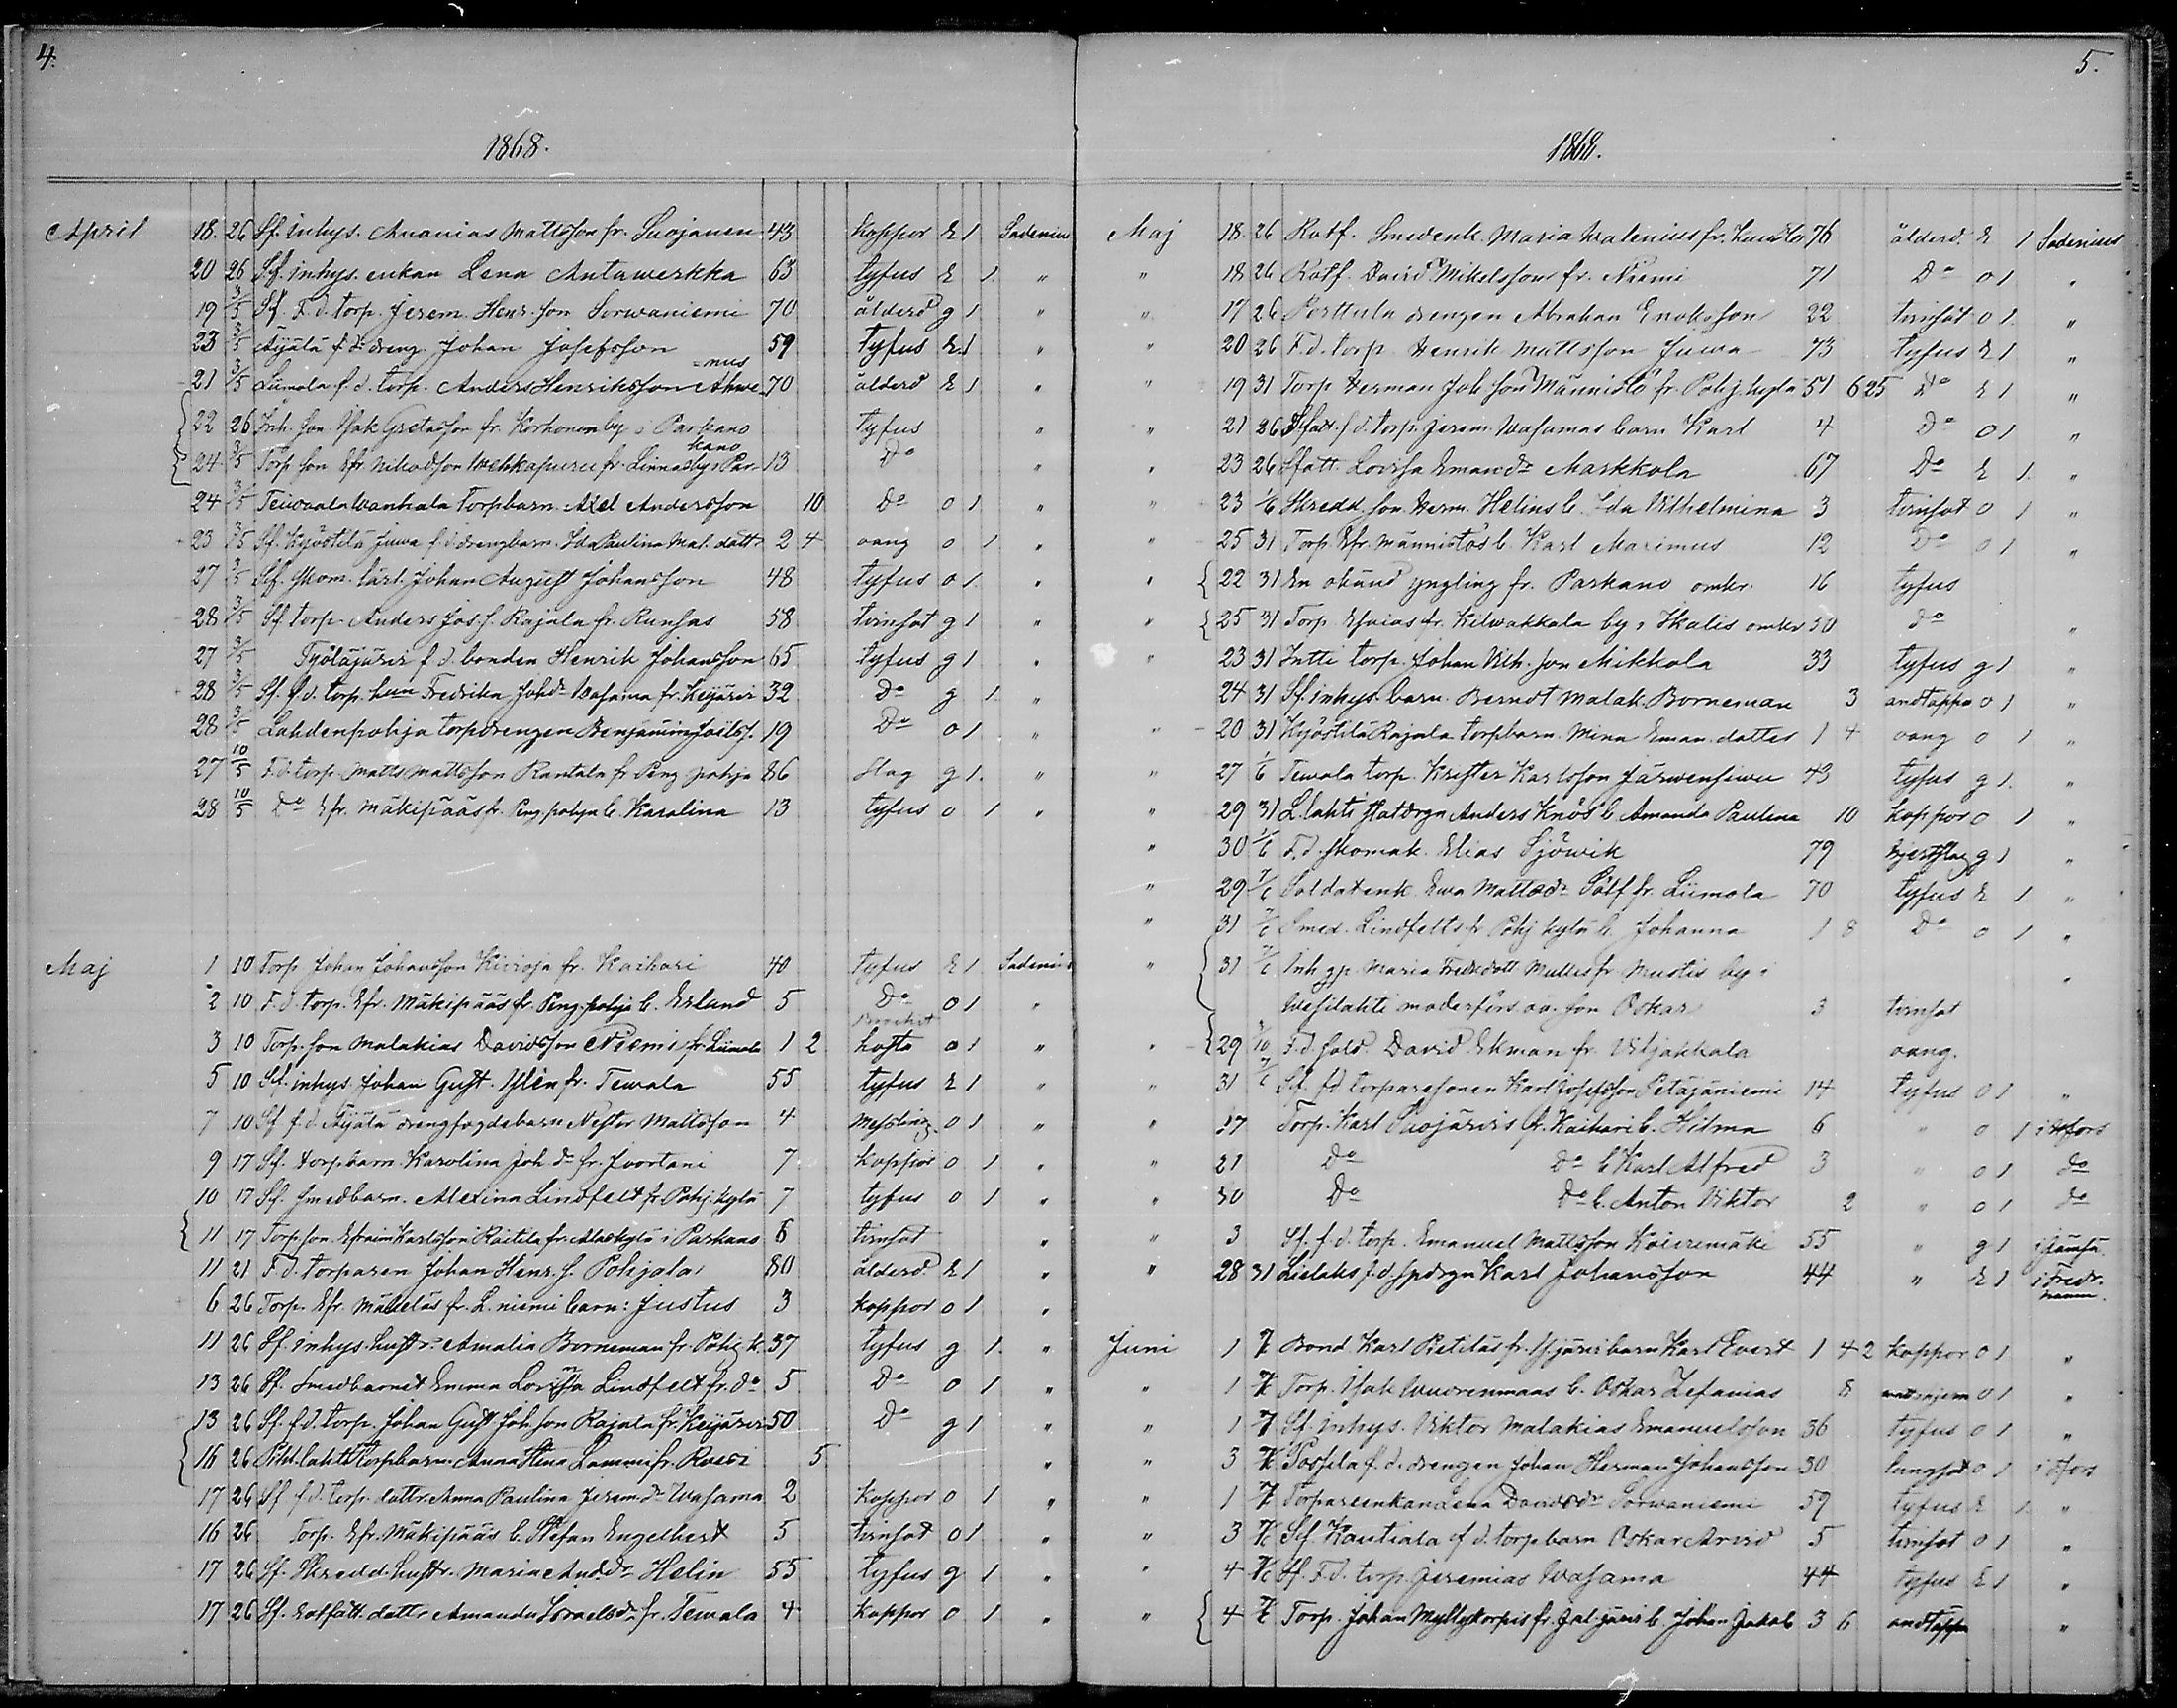 4.
1868.
April 18. 26 Sf. inhys. Ananias Mattsson fr. Suojanen 43 koppor E 1 Sadenius
20 26 Sf. inhys. enkan Lena Antawerkka 63 tyfus E 1. "
19 3/5 Sf. F. d. torp. Jerem. Henr. son Sorwaniemi 70 ålderd g 1 "
23 3/5 Äijälä f. d. dreng Johan Josefsson 59 tyfus E 1 "
=nus
21 3/5 Liimola f. d. torp. Anders Henriksson Ahwe- 70 ålderd E 1 "
22 26 Inh. son Isak Gretasson fr. Korhonen by i Parkano tyfus "
kano
24 3/5 Torp. son Efr. Nikodson Wehkapuru fr. Linnasby i Par- 13 Do "
24 3/5 Teiwaala Wanhala torpbarn Axel Andersson 10 Do o 1 "
23 3/5 Sf. Kyöstilä Juwa f. d. drengbarn Ida Paulina Mat. dattr 2 4 oang o 1 "
27 3/5 Sf. skom. lärl. Johan August Johansson 48 tyfus o 1. "
28 3/5 Sf. torp. Anders Jos. s. Rajala fr. Runsas 58 tvinsot g 1 "
27 3/5 Työläjärvi f. d. bonden Henrik Johansson 65 tyfus g 1 "
28 3/5 Sf. f. d. torp. hun Fredrika Johdr Wasama fr. Keijärvi 32 Do g 1. "
28 3/5 Lahdenpohja torpdrengen Benjamin Joelss. 19 Do o 1 "
27 10/5 F. d. torp. Matts Mattsson Rantala fr. Peng. pohja 86 slag g 1. "
28 10/5 Do Efr. Mäkipääs fr. Peng. pohja b. Karolina 13 tyfus o 1 "
Maj 1 10 Torp. Johan Johansson Kivioja fr. Kaihari 40 tyfus E 1 Sadenius
2 10 F. d. torp. Efr. Mäkipääs fr. Peng. pohja b. Erland 5 Do o 1 "
3 10 Torp. son Malakias Davidsson Niemi fr. Liimola 1 2 hosta o 1 "
5 10 Sf. inhys. Johan Gust. Ylén fr. Tewala 55 tyfus E 1 "
7 10 Sf. f. d. Äijälä drengfogdebarn Nestor Mattsson 4 Messling o 1 "
9 17 Sf. torpbarn Karolina Joh. dr fr. Jvortani 7 koppor o 1 "
10 17 Sf. smedbarn Alexina Lindfelt fr. Pohj. kylä 7 tyfus o 1 "
11 17 Torp. son Efraim Karlsson Raitila fr. Alaskylä i Parkano 6 tvinsot "
11 21 F. d. torparen Johan Henr. s. Pohjala 80 ålderd. E 1 "
6 26 Torp. Efr. Mäkeläs fr. L. niemi barn: Justus 3 koppor o 1 "
11 26 Sf. inhys. hustr. Amalia Borneman fr. Pohj. k. 37 tyfus g 1. "
13 26 Sf. Smedbarnet Emma Lovisa Lindfelt fr. do 5 Do o 1 "
13 26 Sf. f. d. torp. Johan Gust Joh. son Rajala fr. Keijärvi 50 Do g 1 "
16 26 Pitk. lahti torpbarn Anna Stina Lammi fr. Ruovi 5 "
17 26 Sf. f. d. torp. dattr. Anna Paulina Jerem. dr Wasama 2 koppor o 1 "
16 26 Torp. Efr. Mäkipääs b. Stefan Engelbert 5 tvinsot o 1 "
17 26 Sf. Skredd. hustr. Maria And. dr Helin 55 tyfus g 1 "
17 26 Sf. Rotfatt. dattr. Amanda Israelsdr fr. Tewala 4 koppor o 1 "
5.
1868.
Maj 18. 26 Rotf. Smedenk. Maria Walenius fr. 76 ålderd. E 1 Sadenius
" 18 26 Rotf. David Mikelsson fr. Niemi 71 Do o 1 "
" 17 26 Perttula drengen Abraham Enoksson 22 tvinsot o 1. "
" 20 26 F. d. torp. Henrik Mattsson Juwa 73 tyfus E 1 "
" 19 31 Torp. Herman Joh. son Männistö fr. Pohj. kylä 51 6 25 Do E 1 "
" 21 26 f. d. torp. Jerem. Wasamas barn Karl 4 Do o 1 "
" 23 26 Sfatt. Lovisa Emandr Markkola 67 Do E 1. "
" 23 1/6 Skredd. son Herm. Helins b. Ida Vilhelmina 3 tvinsot o 1 "
" 25 31 Torp. Efr. Männistös b. Karl Maximus 12 Do o 1 "
" 22 31 En okänd yngling fr. Parkano omkr. 16 tyfus
" 25 31 Torp. Esaias fr. Kilwakkala by i Ikalis omkr 50 do "
" 23 31 Intti torp. Johan Vilh. son Mikkola 33 tyfus g 1 "
24 31 Sf. inhys. barn Berndt Malak. Borneman 3 andtäppa o 1 "
" 20 31 Kyöstilä Rajala torpbarn Mina Eman. dotter 1 4 oang o 1 "
" 27 1/6 Tewala torp. Krister Karlsson Järwensiwu 43 tyfus g 1. "
" 29 31 L. lahti statdrgn Anders Knös b. Amanda Paulina 10 koppor o 1 "
" 30 1/6 F. d. skomak. Elias Sjöwik 79 hjertslag g 1 "
" 29 7/6 Soldatenk. Ewa Mattsdr Sölf fr. Liimola 70 tyfus E 1 "
" 31 7/6 Smed. Lindfelts fr. Pohj. kylä b. Johanna 1 8 Do o 1 "
" 31 7/6 Inh. gp. Maria Fredrdott. Mullers fr. Mustis by i "
Wesilahti moderförs. oä. son Oskar 3 tvinsot
" 29 F. d. sold. David Ekman fr. Viljakkala oang.
" 31 7/6 Sf. f. d. torparesonen Karl Josefsson Petäjäniemi 14 tyfus o 1 "
" 17 Torp. Karl Suojärvis fr. Kaihari b. Hilma 6 " o 1 i Tfors
" 21 Do Do b. Karl Alfred 3 " o 1 do
" 30 Do Do b. Anton Viktor 2 " o 1 do
" 3 Sf. f. d. torp. Emanuel Mattsson Koiwumäki 55 " g 1 i Jämsä
" 28 31 Lielaks f. d. spdrgn Karl Johansson 44 " E 1 i Fredr.
hamn.
Juni 1 7/6 Bond. Karl Pietiläs fr. Ylijärvi barn Karl Evert 1 4 2 koppor o 1 "
" 1 7/6 Torp. Isak Wuorenmaas b. Oskar Zefanias 8 o 1 "
" 1 7/6 Sf. inhys. Viktor Malakias Emanuelsson 36 tyfus o 1 "
" 3 7/6 f. d. drengen Johan Herman Johansson 30 lungsot o 1 i Tfors
" 1 7/6 Torpareenkan Lena Davidsdr Sorwaniemi 59 tyfus E 1 "
" 3 7/6 Sf. Kautiala f. d. torpbarn Oskar Arvid 5 tvinsot o 1 "
" 4 7/6 Sf. F. d. torp. Jeremias Wasama 44 tyfus E 1 "
" 4 7/6 Torp. Johan Myllykorpis fr. Jal. järvi b. Johan Jakob 3 6 andtäppa "